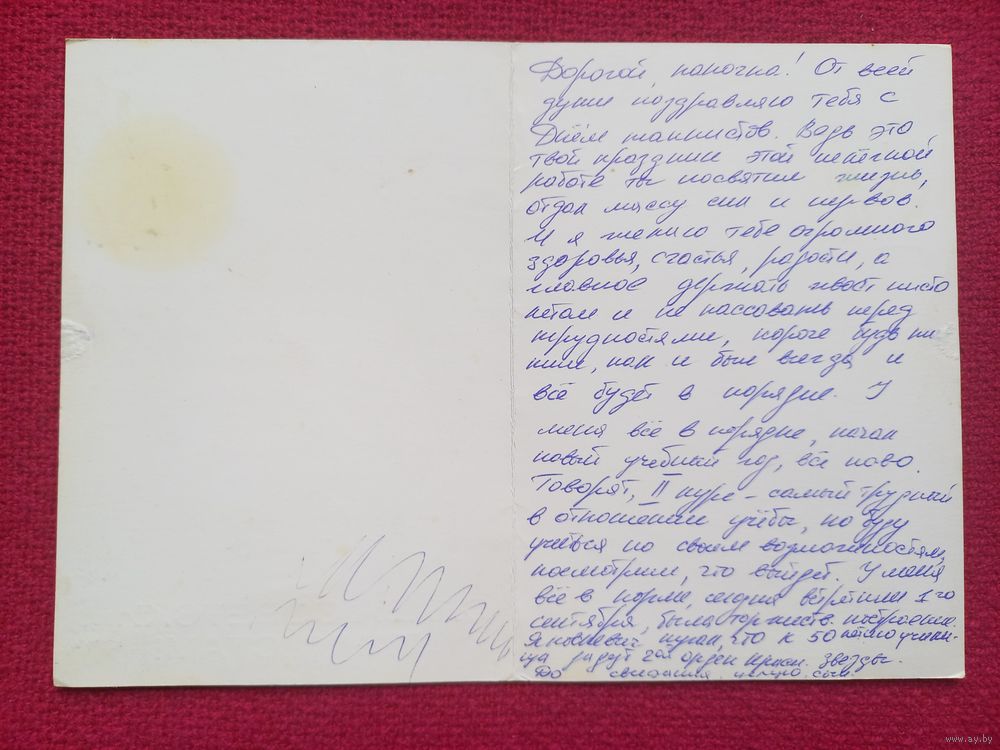 Дорогой папочка! От всей
души поздравляю тебя с
Днём танкистов. Ведь это
твой праздник этой нелёгкой
работе ты посвятил жизнь,
отдал массу сил и нервов.
И я желаю тебе огромного
здоровья, счастья, радости, а
главное держать хвост писто
летом и не пассовать перед
трудностями, короче будь та
ким, как и был всегда и
всё будет в порядке. У
меня всё в порядке, начал
новый учебный год, всё ново.
Говорят, II курс - самый трудный
в отношении учёбы, но буду
учиться по своем возможностям,
посмотрим, что выйдет. У меня
всё в норме, сегодня встретили 1го
сентября, было торжеств. построение.
что к 50летию учили-
ща дадут 2ой орден Красн. Звезды.
До свидания. целую. сын.
www.ay.by